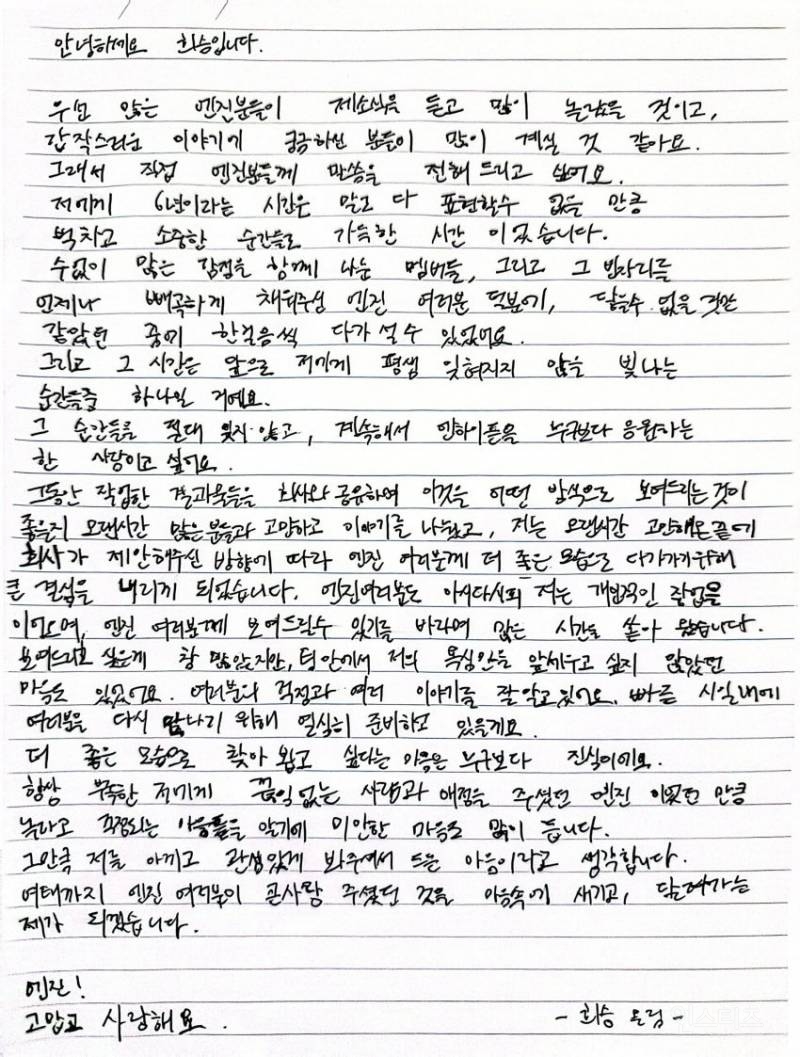 안녕하세요 희승입니다.
우선 많은 엔진분들이 제소식을 듣고 많이 놀랐을 것이고,
갑작스러운 이야기에 궁금하신 분들이 많이 계실 것 같아요.
그래서 직접 엔진분들께 말씀을 전해 드리고 싶어요.
저에게 6년이라는 시간은 말로 다 표현할수 없을 만큼
벅차고 소중한 순간들로 가득한 시간 이었습니다.
수없이 많은 감정을 함께 나눈 멤버들, 그리고 그 빈자리를
언제나 빼곡하게 채워주신 엔진 여러분 덕분에, 닿을수 없을 것만
같았던 꿈에 한걸음씩 다가 설 수 있었어요.
그리고 그 시간은 앞으로 저에게 평생 잊혀지지 않을 빛나는
순간들중 하나일 거예요.
그 순간들을 절대 잊지 않고, 계속해서 엔하이픈을 누구보다 응원하는
한 사람이고 싶어요.
그동안 작업한 결과물들을 회사와 공유하며 이것을 어떤 방식으로 보여드리는것이
좋을지 오랜시간 많은 분들과 고민하고 이야기를 나눴고, 저는 오랜시간 고민해온 끝에
회사가 제안해주신 방향에 따라 엔진 여러분께 더 좋은 모습으로 다가가기위해
큰 결심을 내리게 되었습니다. 엔진여러분도 아시다시피 저는 개인적인 작업을
이어오며, 엔진 여러분께 보여드릴수 있기를 바라며 많은 시간을 쏟아 왔습니다.
보여드리고 싶은게 참 많았지만, 팀안에서 저의 욕심만을 앞세우고 싶지 않았던
마음도 있었어요. 여러분의 걱정과 여러 이야기를 잘 알고 있어요. 빠른 시일내에
여러분을 다시 만나기 위해 열심히 준비하고 있을게요.
더 좋은 모습으로 찾아 뵙고 싶다는 마음은 누구보다 진심이에요.
항상 부족한 저에게 끊임없는 사랑과 애정을 주셨던 엔진 이었던 만큼
놀라고 걱정되는 마음들을 알기에 미안한 마음도 많이 듭니다.
그만큼 저를 아끼고 관심있게 봐주셔서 드는 마음이라고 생각합니다.
여태까지 엔진 여러분이 큰사랑 주셨던 것을 마음속에 새기고, 달려가는
제가 되겠습니다.
엔진!
고맙고 사랑해요.
- 희승 드림 -